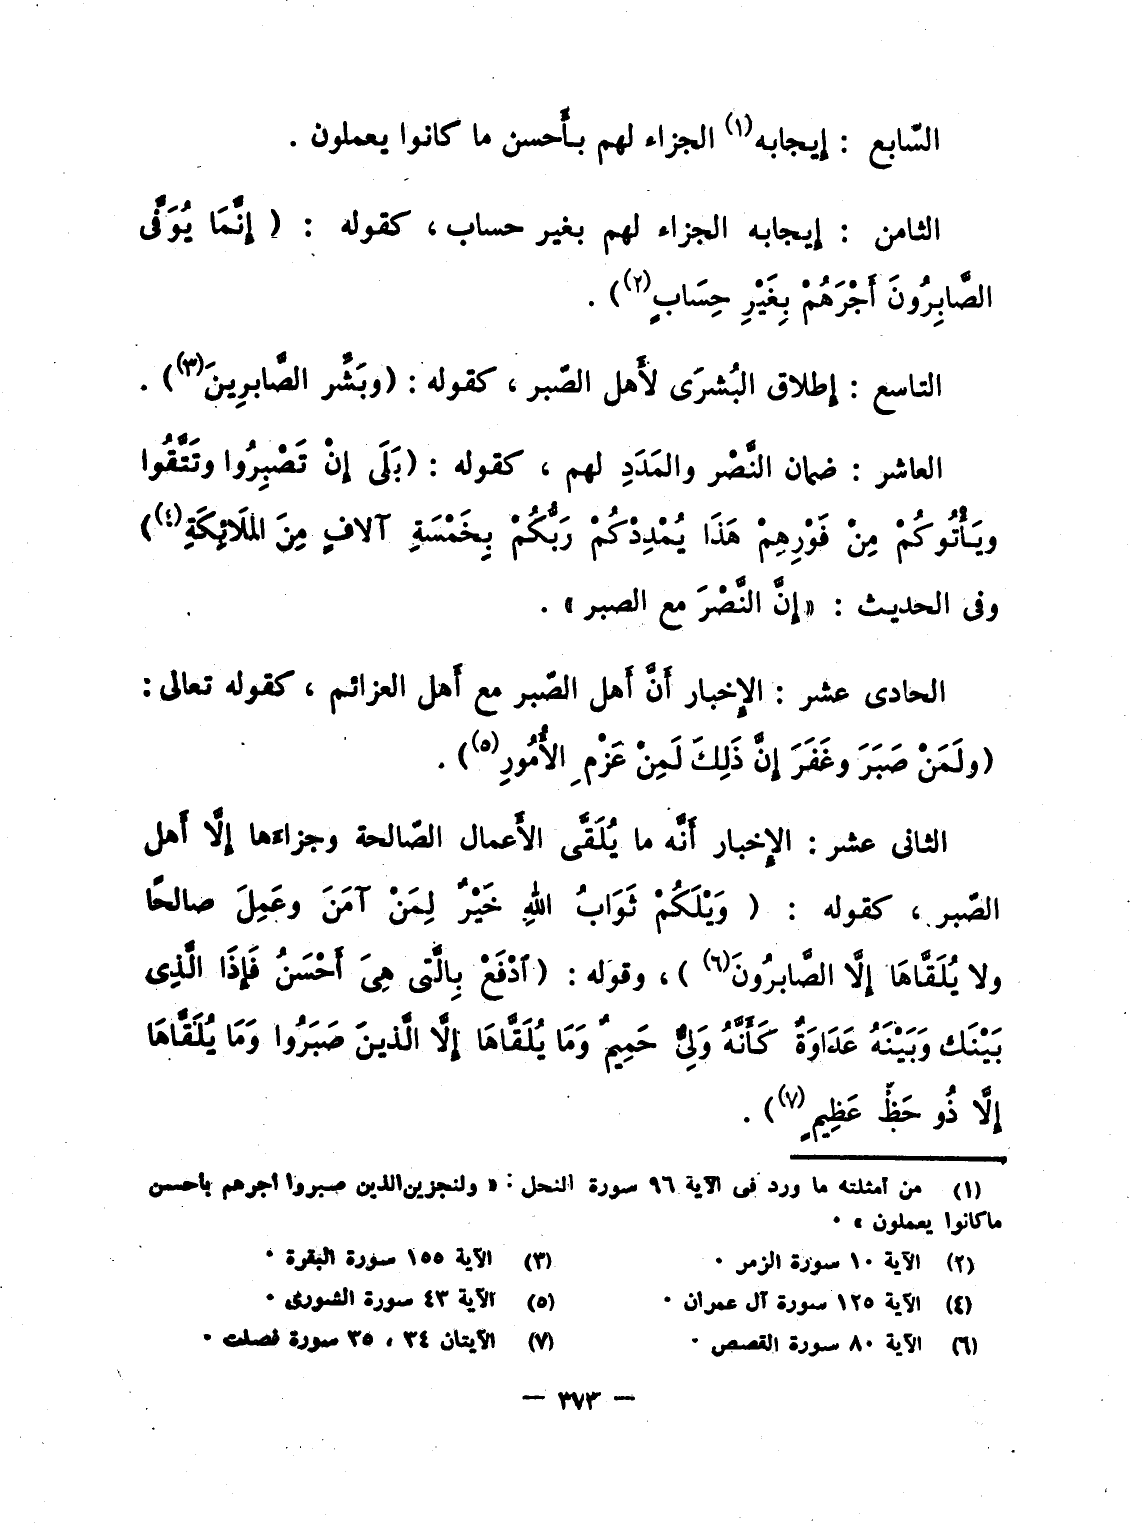 السّابع : إيجابه(١) الجزاء لهم بأَحسن ما كانوا يعملون .
الثامن : إيجابه الجزاء لهم بغير حساب ، كقوله : ( إِنَّمَا يُوَفَّى
الصَّابِرُونَ أَجْرَهُمْ بِغَيْرِ حِسَابٍ(٢)) .
التاسع : إطلاق البُشرَى لأَهل الصّبر ، كقوله : (وبَشِّر الصَّابرِينَ(٣)) .
العاشر : ضمان النَّصْر والمَدَدِ لهم ، كقوله : (بَلَى إِنْ تَصْبِرُوا وتَتَّقُوا
ويَأْتُوكُمْ مِنْ فَوْرِهِمْ هَذَا يُمْدِدْكُمْ رَبُّكُمْ بِخَمْسَةِ آلافٍ مِنَ المَلَائِكَةِ(٤))
وفى الحديث : «إِنَّ النَّصْرَ مع الصبر » .
الحادى عشر : الإِخبار أَنَّ أَهل الصّبر مع أَهل العزائم ، كقوله تعالى :
(ولَمَنْ صَبَرَ وغَفَرَ إِنَّ ذَلِكَ لَمِنْ عَزْمِ الأُمُورِ(٥)) .
الثانى عشر : الإِخبار أَنَّه ما يُلَقَّى الأَعمال الصّالحة وجزاءَها إِلَّا أَهل
الصّبر ، كقوله : ( وَيْلَكُمْ ثَوَابُ اللهِ خَيْرٌ لِمَنْ آمَنَ وعَمِلَ صالحًا
ولا يُلَقَّاهَا إِلَّا الصَّابرُونَ(٦) ) ، وقوله : (ٱدْفَعْ بِالَّتى هِىَ أَحْسَنُ فَإِذَا الَّذِى
بَيْنَك وَبَيْنَهُ عَدَاوَةٌ كَأَنَّهُ وَلِىٌّ حَمِيمٌ وَمَا يُلَقَّاهَا إِلَّا الَّذينَ صَبَرُوا وَمَا يُلَقَّاهَا
إِلَّا ذُو حَظٍّ عَظِيمٍ(٧)) .
(١) من أمثلته ما ورد فى الآية ٩٦ سورة النحل : « ولنجزين الذين صبروا أجرهم بأحسن
ما كانوا يعملون » .
(٢) الآية ١٠ سورة الزمر . (٣) الآية ١٥٥ سورة البقرة .
(٤) الآية ١٢٥ سورة آل عمران . (٥) الآية ٤٣ سورة الشورى .
(٦) الآية ٨٠ سورة القصص . (٧) الآيتان ٣٤ ، ٣٥ سورة فصلت .
— ٣٧٣ —